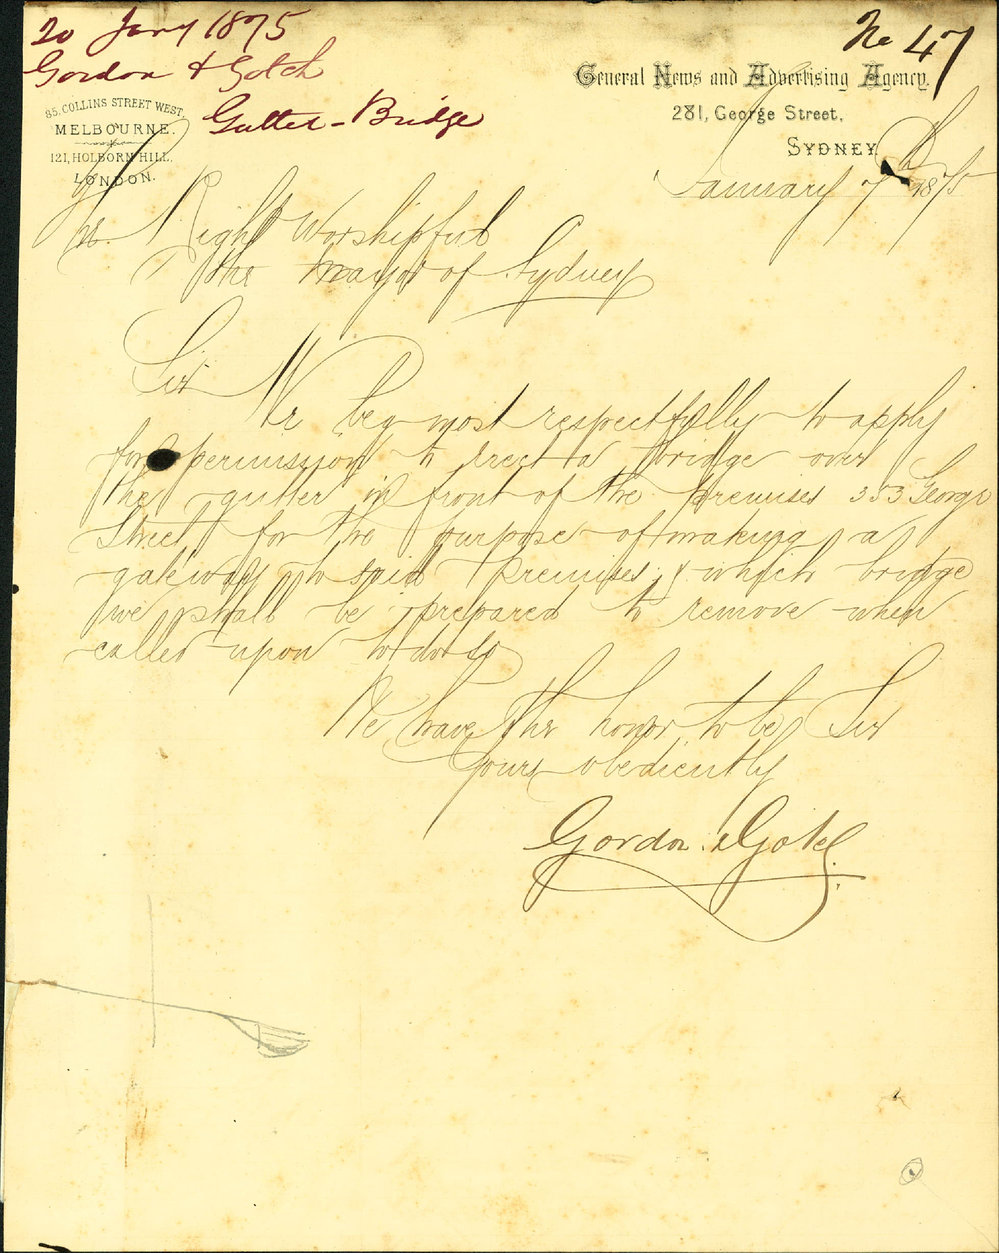 20 Jany 1875
Gordon & Gotch
Gutter-Bridge
No 47
85, COLLINS STREET WEST,
MELBOURNE.
121, HOLBORN HILL,
LONDON.
General News and Advertising Agency.
281, George Street,
SYDNEY
January 7th 1875
Right Worshipful
the Mayor of Sydney
Sir
We beg most respectfully to apply
for permission to erect a bridge over
the gutter in front of the premises 353 George
Street for the purpose of making a
gateway to said premises; & which bridge
we shall be prepared to remove when
called upon to do so
We have the honor to be Sir
Yours obediently
Gordon & Gotch